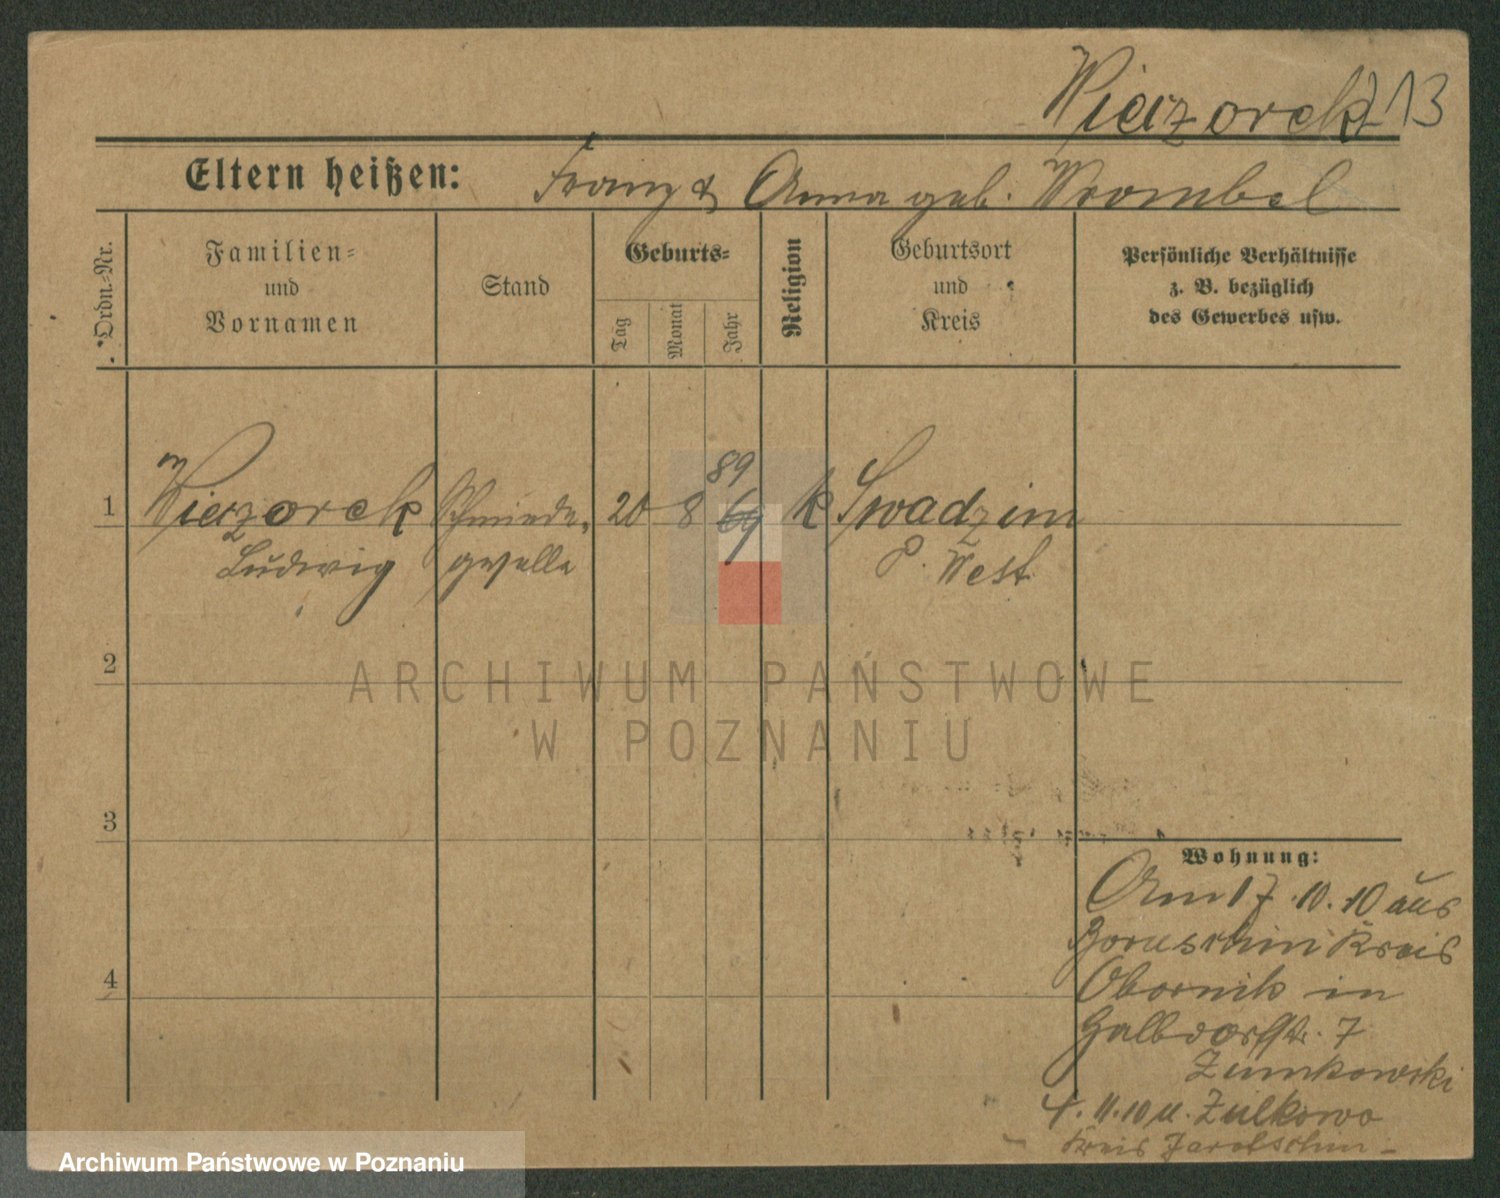 Wierzoreck 213
Eltern heißen: Franz & Anna geb. Wrombel
Ordn.-Nr.
Familien-
und
Vornamen
Stand
Geburts-
Tag
Monat
Jahr
Religion
Geburtsort
und
Kreis
Persönliche Verhältnisse
z. B. bezüglich
des Gewerbes usw.
89
1 Wierzoreck Schmiede- 20 8 69 k Swadzim
Ludwig geselle P. West
2
ARCHIWUM PAŃSTWOWE
W POZNANIU
3
Wohnung:
Am 17.10.10 aus
Boruschin Kreis
4 Obornik in
7
Zumkowski
4.11.10 u. Zulkowo
Kreis Jarotschin
Archiwum Państwowe w Poznaniu